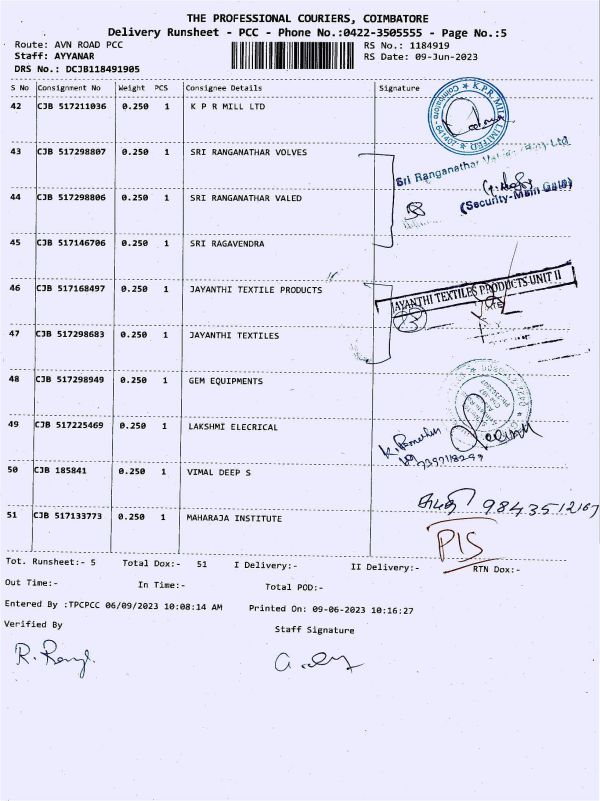 THE PROFESSIONAL COURIERS, COIMBATORE
Delivery Runsheet - PCC - Phone No.:0422-3505555 - Page No.:5
Route: AVN ROAD PCC RS No.: 1184919
Staff: AYYANAR RS Date: 09-Jun-2023
DRS No.: DCJB118491905
S No Consignment No Weight PCS Consignee Details Signature
42 CJB 517211036 0.250 1 K P R MILL LTD
K.P.R. MILL LIMITED Coimbatore - 641407
43 CJB 517298807 0.250 1 SRI RANGANATHAR VOLVES
Sri Ranganathar Ltd
44 CJB 517298806 0.250 1 SRI RANGANATHAR VALED
(Security-Main Gate)
45 CJB 517146706 1 SRI RAGAVENDRA
46 CJB 517168497 0.250 1 JAYANTHI TEXTILE PRODUCTS
JAYANTHI TEXTILES PRODUCTS-UNIT II
47 CJB 517298683 0.250 1 JAYANTHI TEXTILES
48 CJB 517298949 0.250 1 GEM EQUIPMENTS
49 CJB 517225469 0.250 1 LAKSHMI ELECRICAL
50 CJB 185841 0.250 1 VIMAL DEEP S
9843512167
51 CJB 517133773 0.250 1 MAHARAJA INSTITUTE
PIS
Tot. Runsheet:- 5 Total Dox:- 51 I Delivery:- II Delivery:- RTN Dox:-
Out Time:- In Time:- Total POD:-
Entered By :TPCPCC 06/09/2023 10:08:14 AM Printed On: 09-06-2023 10:16:27
Verified By Staff Signature